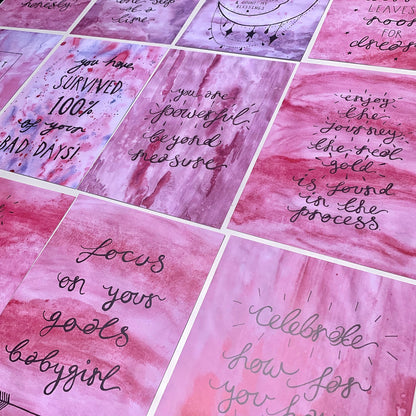 honestly
time
LEAVES
ROOM
FOR
you have
SURVIVED
100%
of your
BAD DAYS!
you are
powerful
beyond
measure
enjoy
the
journey,
the real
gold
is found
in the
process
focus
on your
goals
babygirl
Celebrate
how far
you